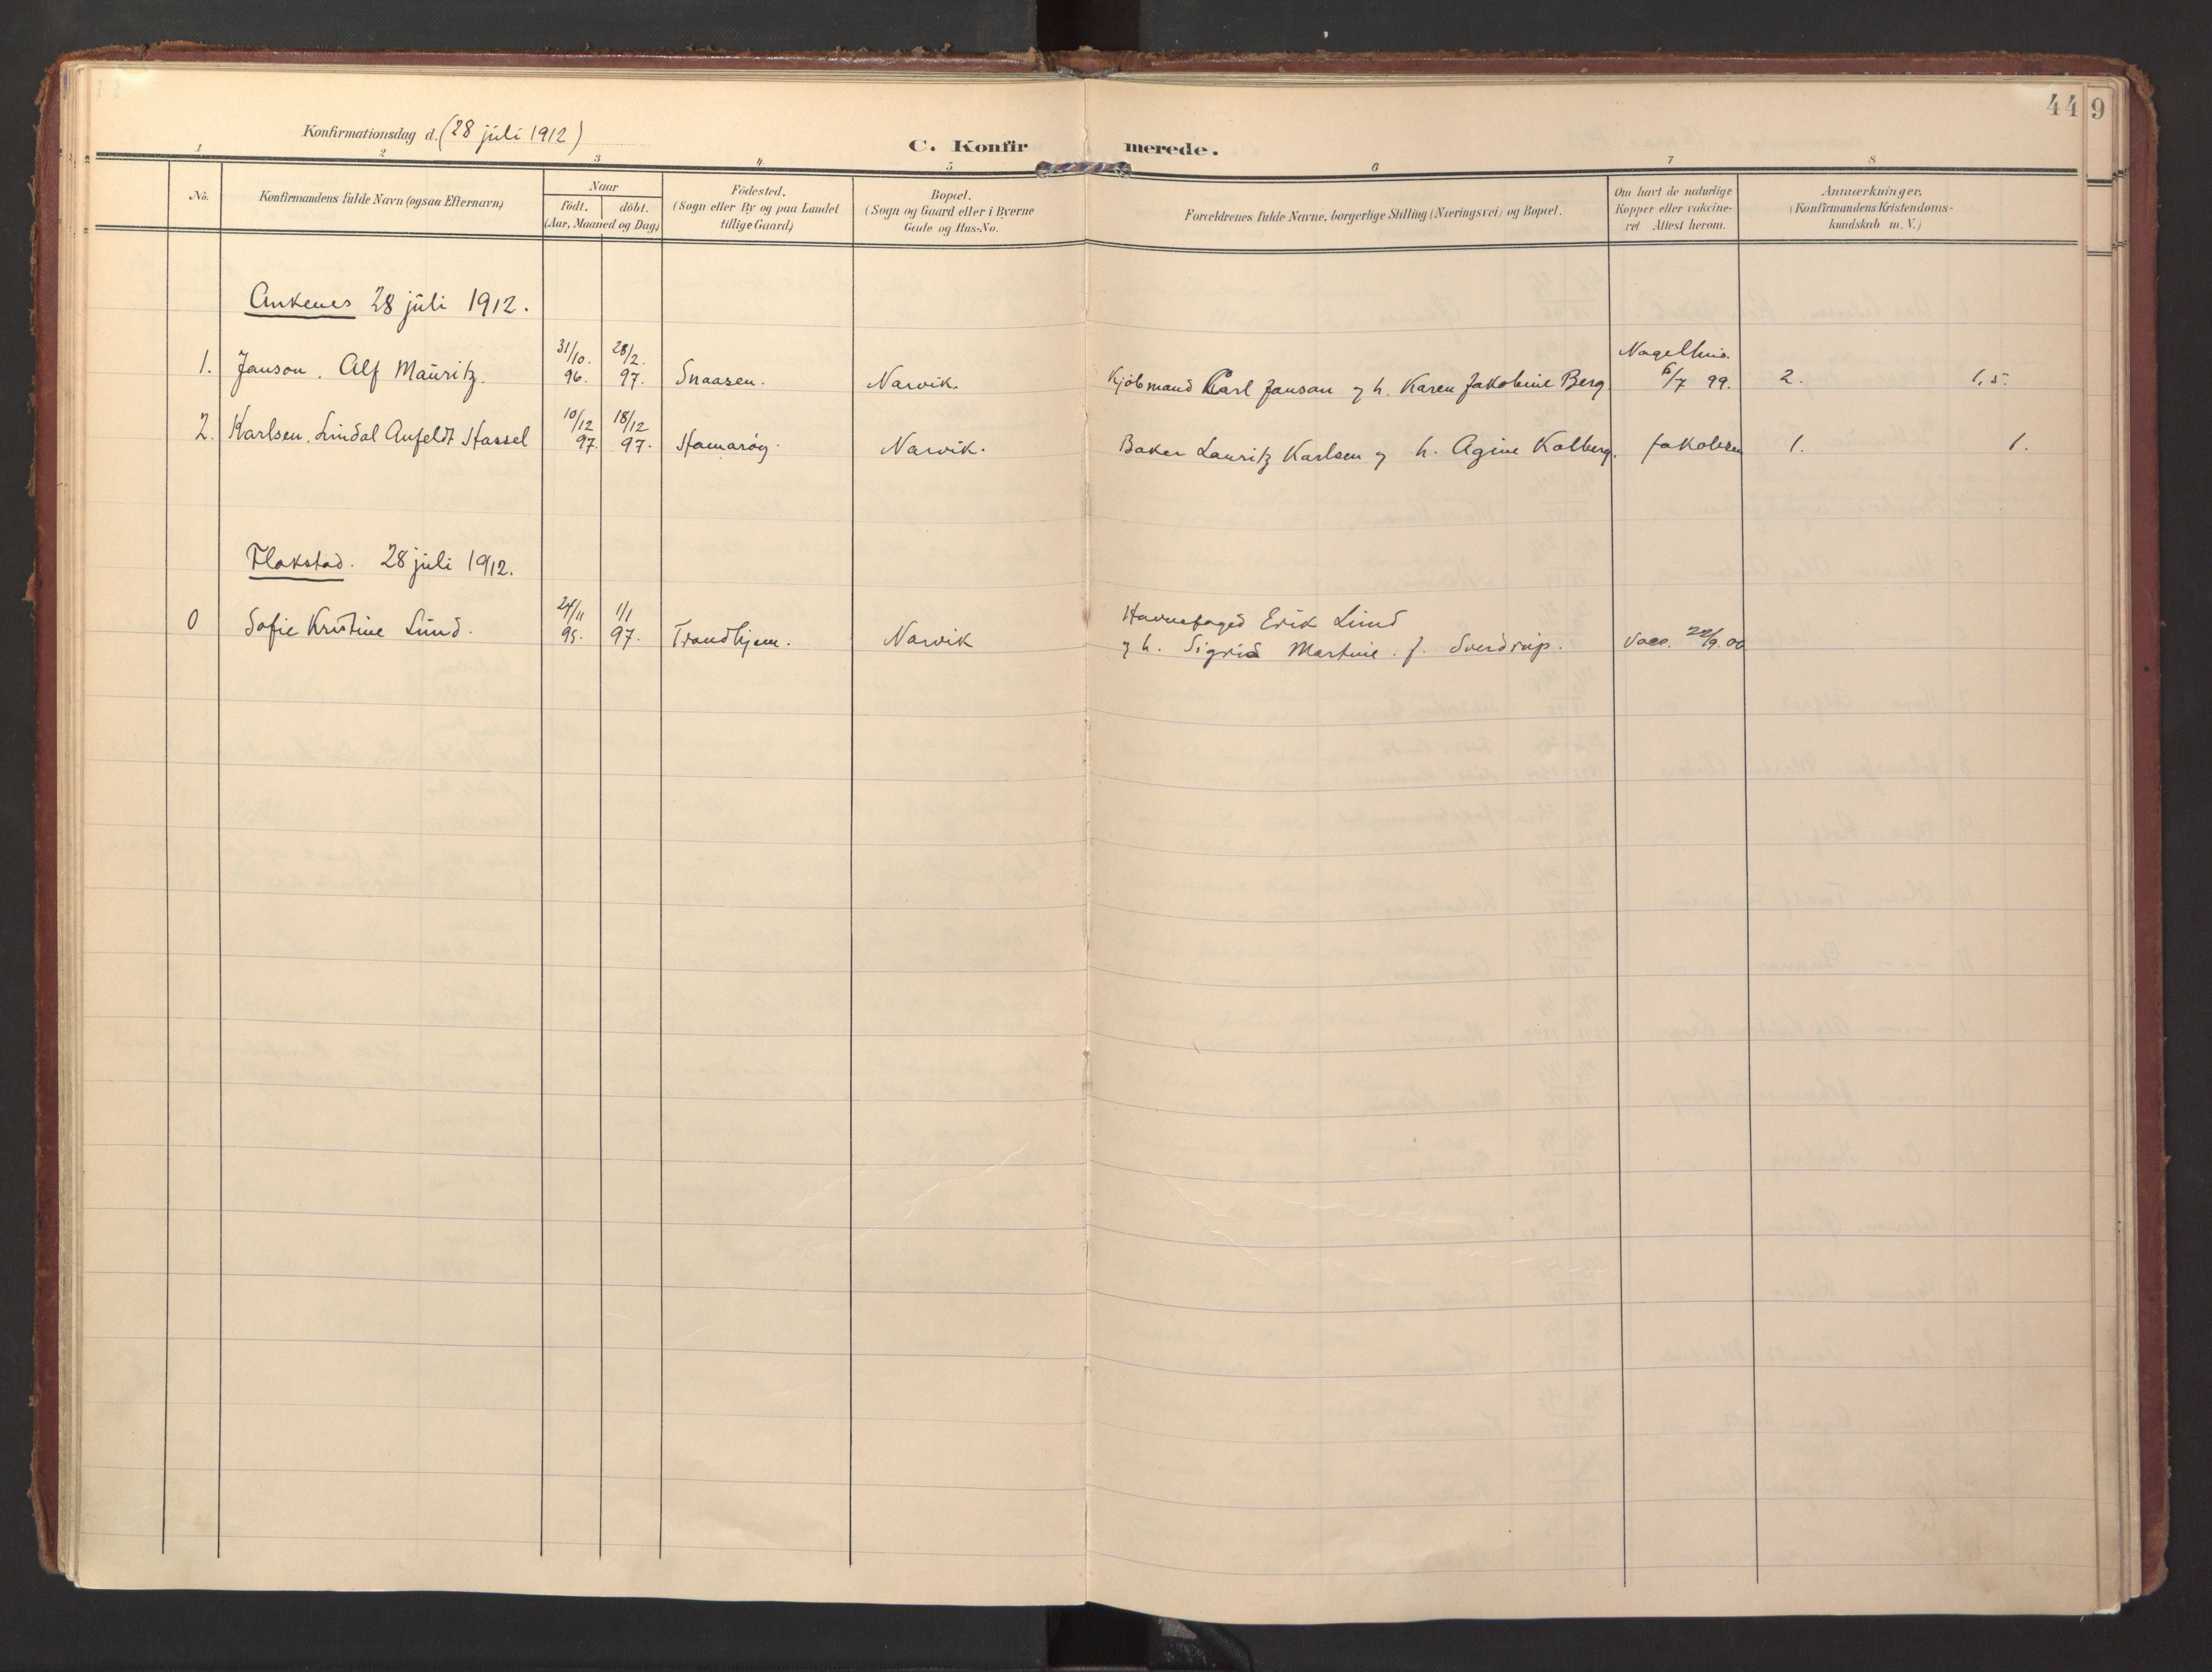 44 9
Konfirmationsdag d. (28 júli 1912)
C. Konfirmerede.
1 2 3 4 5 6 7 8
No.
Konfirmandens fulde Navn (ogsaa Efternavn)
Naar
födt. döbt.
(Aar, Maaned og Dag)
Födested.
(Sogn eller By og paa Landet
tillige Gaard)
Bopæl.
(Sogn og Gaard eller i Byerne
Gade og Hus-No.
Forældrenes fulde Navne, borgerlige Stilling (Næringsvei) og Bopæl.
Om havt de naturlige
Kopper eller vakcine-
ret Attest herom.
Anmærkninger.
(Konfirmandens Kristendoms-
kundskab m. V.)
Ankenes 28 júli 1912.
1. Janson. Alf Maúritz. 31/10. 96. 28/2. 97. Snaasen. Narvik. Kjöbmand Carl Janson og h. Karen Jakobine Berg Nagelhus. 6/7 99. 2. 1,5.
2. Karlsen. Lindal Anfeldt Hassel 10/12 97. 18/12 97. Hamarøy. Narvik. Baker Lauritz Karlsen og h. Agine Kolberg. Jakobsen 1. 1.
Flakstad. 28 júli 1912.
0 Sofie Kristine Lúnd. 24/11 95. 1/1 97. Trondhjem. Narvik Havnefoged Erik Lund
og h. Sigrid Martine. f. Sverdrúp. Vacc. 22/9. 00